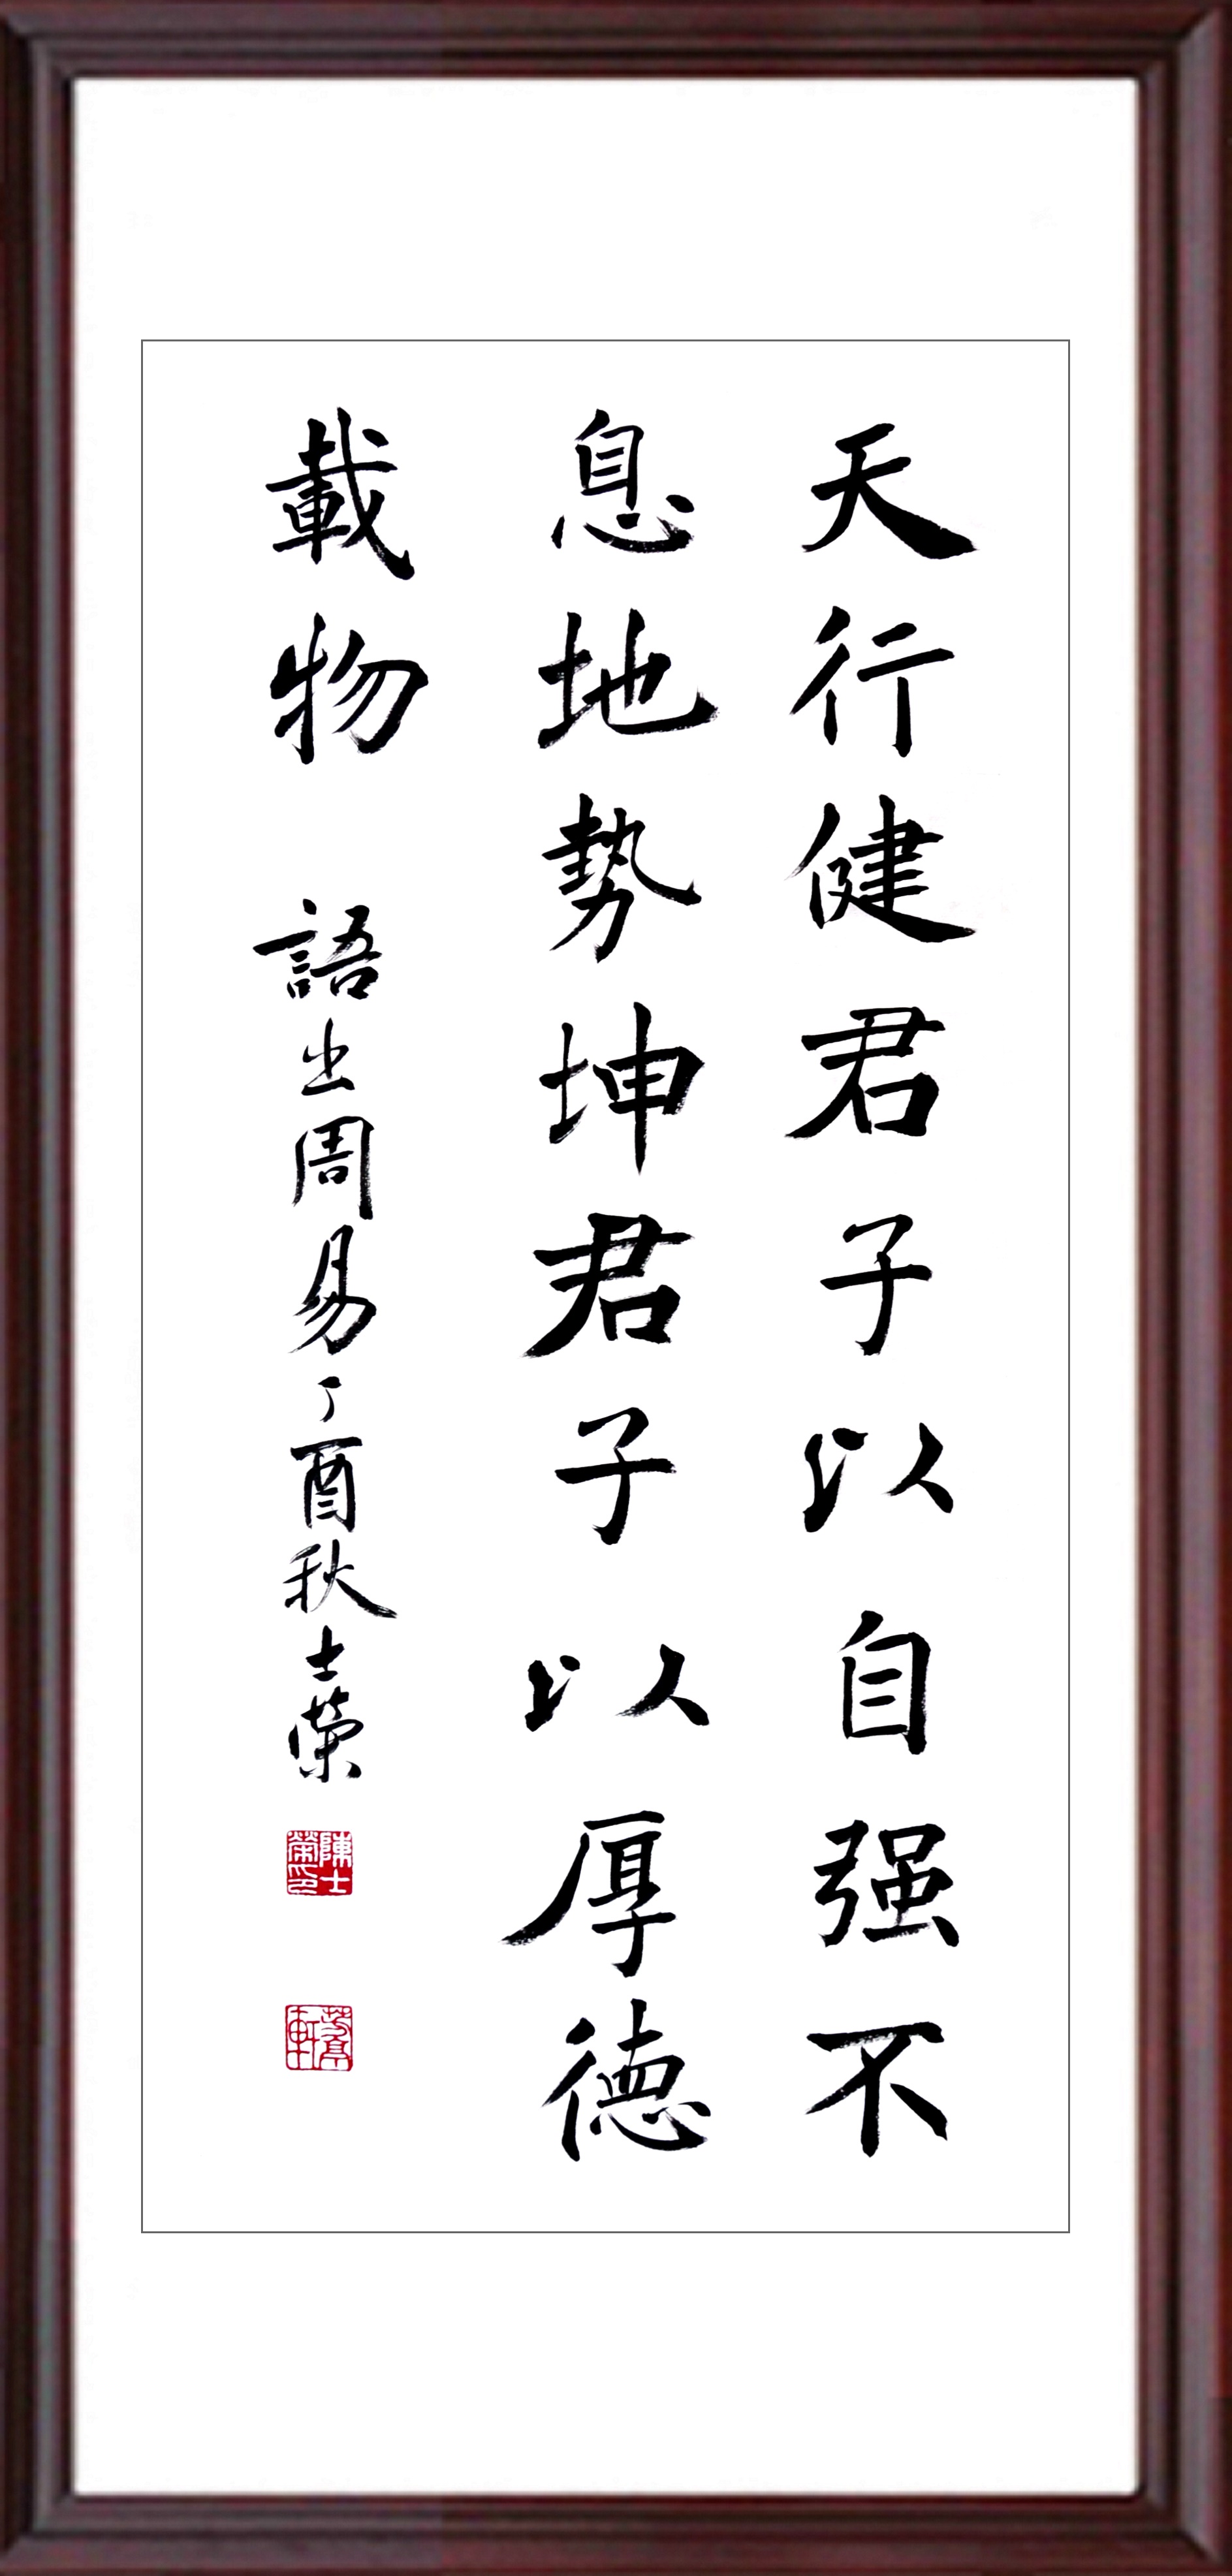 天行健君子以自强不
息地勢坤君子以厚德
載物 語出周易丁酉秋士榮
陳士榮印